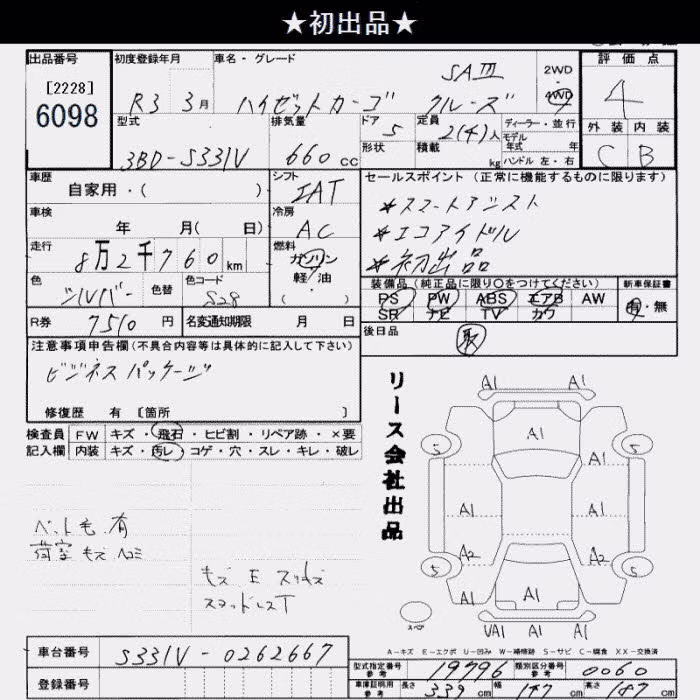 ★初出品★
出品番号 初度登録年月 車名・グレード 評価点
[2228]
6098
R3 3月 ハイゼットカーゴ SAⅢ クルーズ 2WD 4WD 4
型式 排気量 ドア 定員 ディーラー・並行 外装 内装
3BD-S331V 660cc 5 2(4)人 モデル年式 年 C B
形状 積載 kg ハンドル 左・右
車歴 シフト セールスポイント(正常に機能するものに限ります)
自家用・( ) IAT
*スマートアシスト
車検 冷房
年 月( 日) AC
*エコアイドル
走行 燃料
8万2千760km ガソリン
*初出品
色 色替 色コード 軽・油
シルバー S28 ( )
装備品(純正品に限り○をつけてください) 新車保証書
PS PW ABS エアB AW 有・無
SR ナビ TV カワ
R券 7510円 名変通知期限 月 日
後日品 取
注意事項申告欄(不具合内容等は具体的に記入して下さい)
ビジネスパッケージ
修復歴 有 [箇所 ]
検査員 FW キズ・飛石・ヒビ割・リペア跡・×要
記入欄 内装 キズ・汚レ・コゲ・穴・スレ・キレ・破レ
リース会社出品
ペット毛有
荷室キズ
A1 A1
A1
5 A1 5
A1 A1
A2 A2
5 5
A1 A1 A1
VA1 A1
スペア
A-キズ E-エクボ U-凹み W-補修跡 S-サビ C-腐食 XX-交換済
車台番号 S331V-0262667
登録番号
型式指定番号 参考 19796 類別区分番号 参考 0060
車庫証明用 参考 長さ 339cm 幅 147cm 高さ cm